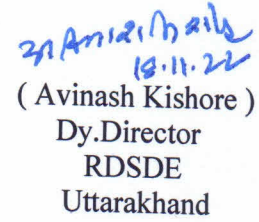 18.11.22
( Avinash Kishore )
Dy.Director
RDSDE
Uttarakhand